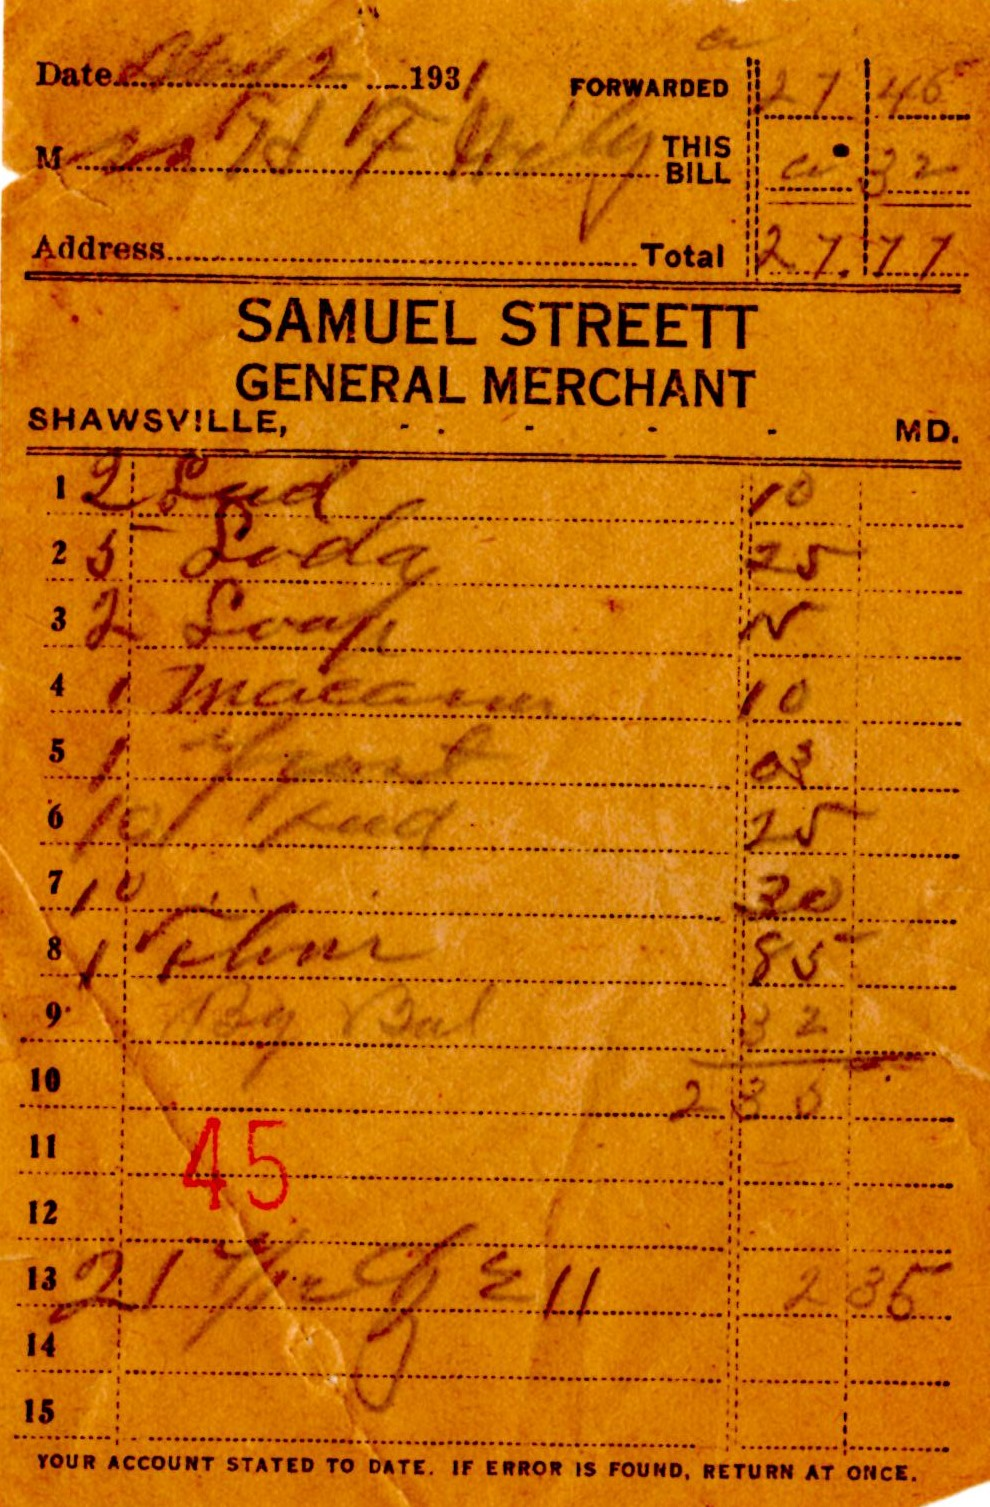 Date 2 1931 FORWARDED 27 45
M H F THIS BILL 32
Address Total 27.77
SAMUEL STREETT
GENERAL MERCHANT
SHAWSVILLE, - - - - - MD.
1 2 10
2 5 Soda 25
3 2 Soap
4 1 10
5 1 03
6 10 25
7 10 30
8 1 85
9 By Bal 32
10 2 35
11 45
12
13 21 11 2 35
14
15
YOUR ACCOUNT STATED TO DATE. IF ERROR IS FOUND, RETURN AT ONCE.